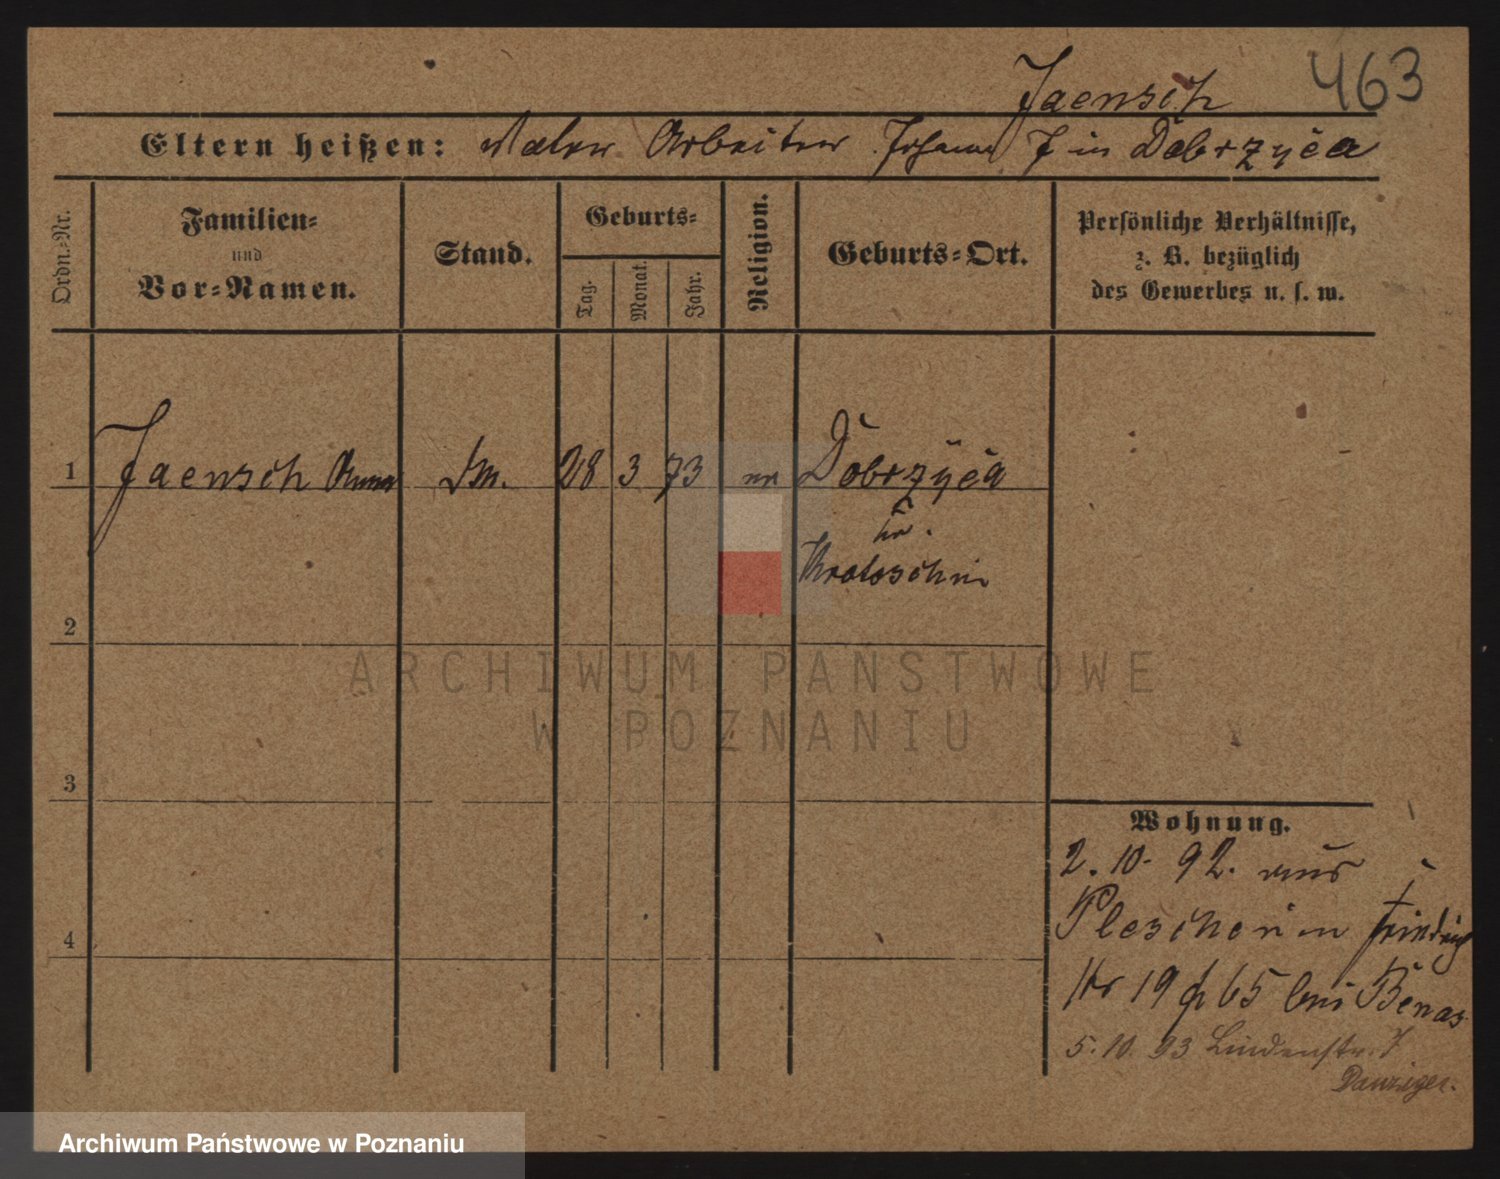 Jaensch 463
Eltern heißen: Vater Arbeiter Johann J in Dobrzyca
Ordn.-Nr.
Familien-
und
Vor-Namen.
Stand.
Geburts-
Tag.
Monat.
Jahr.
Religion.
Geburts-Ort.
Persönliche Verhältnisse,
z. B. bezüglich
des Gewerbes u. s. w.
1 Jaensch Anna 28 3 73 Dobrzyca
Kr.
Krotoschin
2
3
4
Wohnung.
2. 10. 92. aus
Pleschen in
19 65 bei Benas
5. 10. 93 Lindenstr. 7
Danziger.
ARCHIWUM PAŃSTWOWE
W POZNANIU
Archiwum Państwowe w Poznaniu